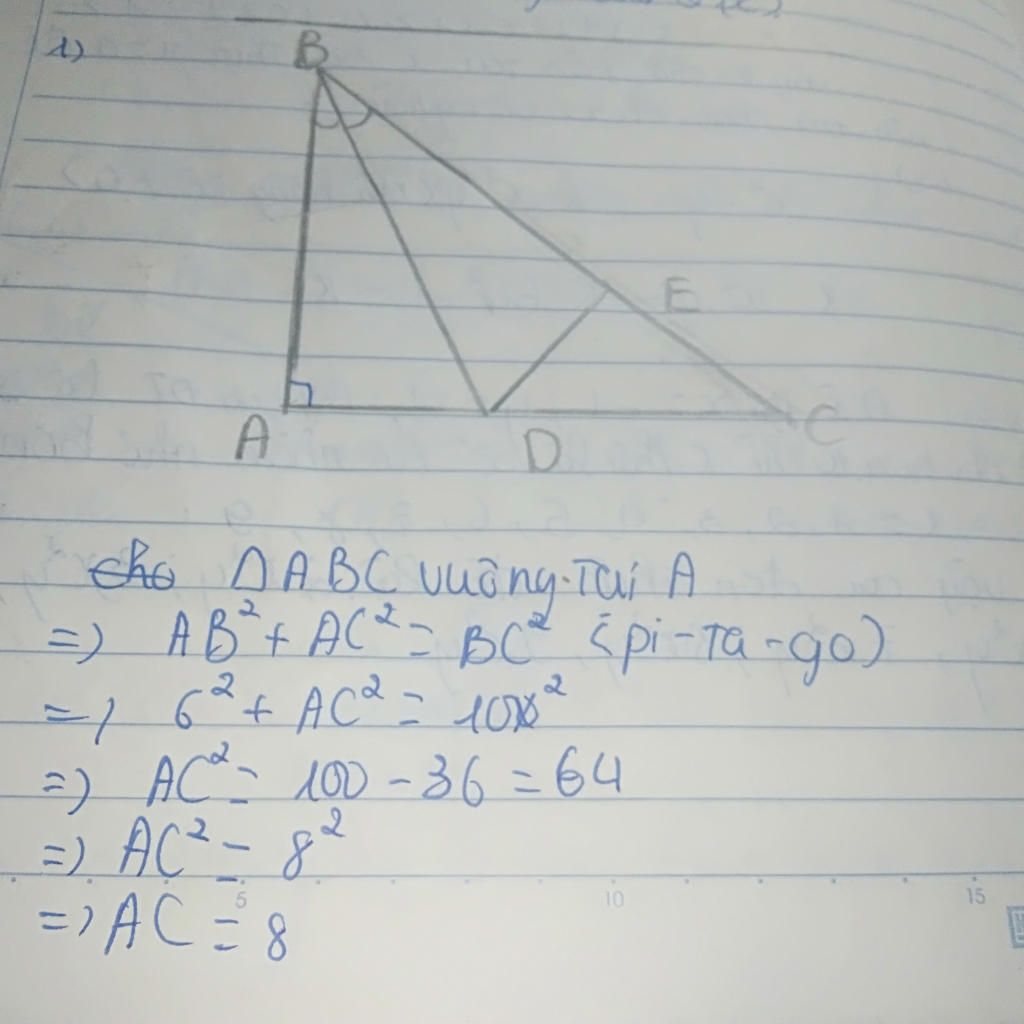 1)
B
E
A
D
C
Cho ΔABC vuông. Tại A
=) AB²+ AC² = BC² (pi-Ta-go)
=) 6² + AC² = 10²
=) AC² = 100 - 36 = 64
=) AC² = 8²
=) AC = 8
5
10
15